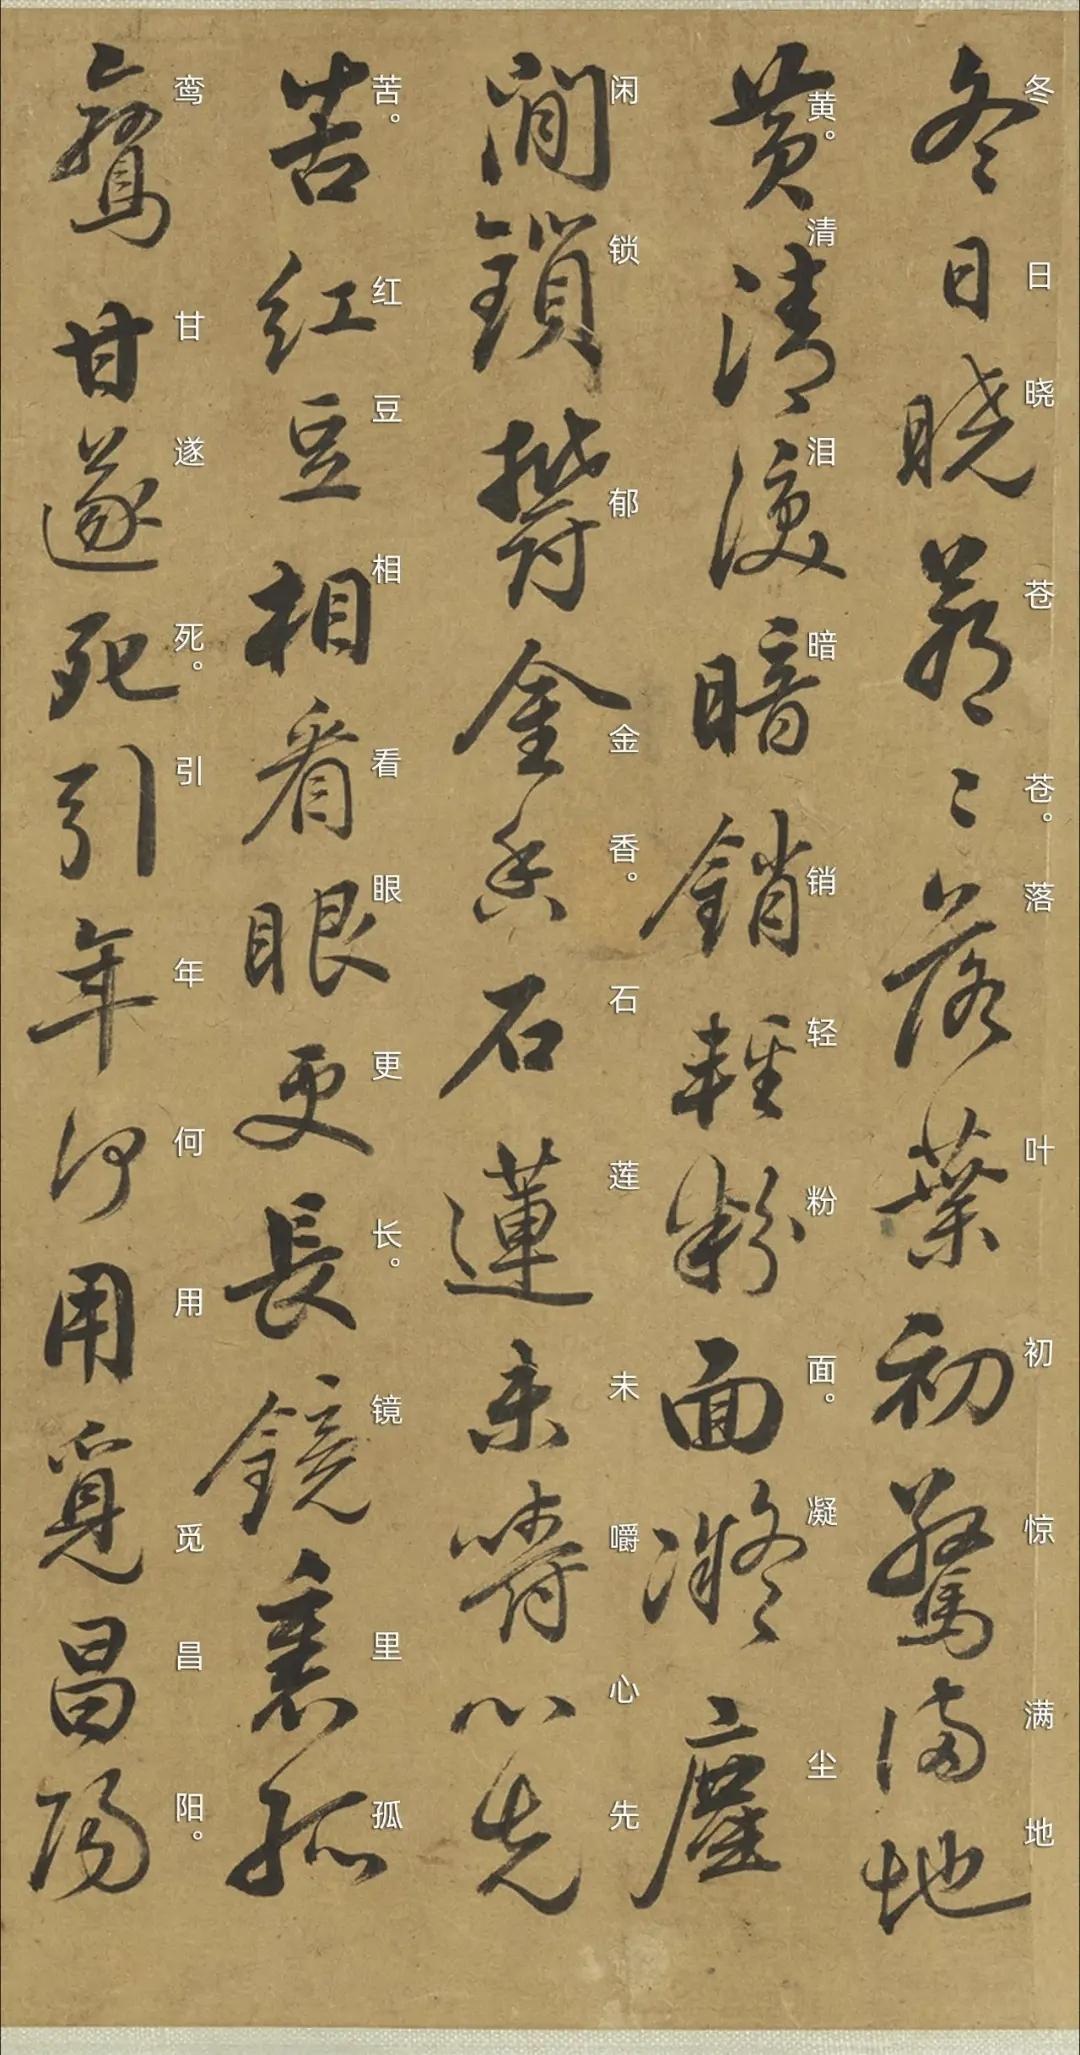 冬日晓苍苍。落叶初惊满地
冬日曉蒼〻落葉初驚滿地
黄。清泪暗销轻粉面。凝尘
黄清淚暗銷輕粉面凝塵
闲锁郁金香。石莲未嚼心先
閒鎖欝金香石蓮未嚼心先
苦。红豆相看眼更长。镜里孤
苦紅豆相看眼更長鏡裏孤
鸾甘遂死。引年何用觅昌阳。
鸞甘遂死引年何用覓昌陽